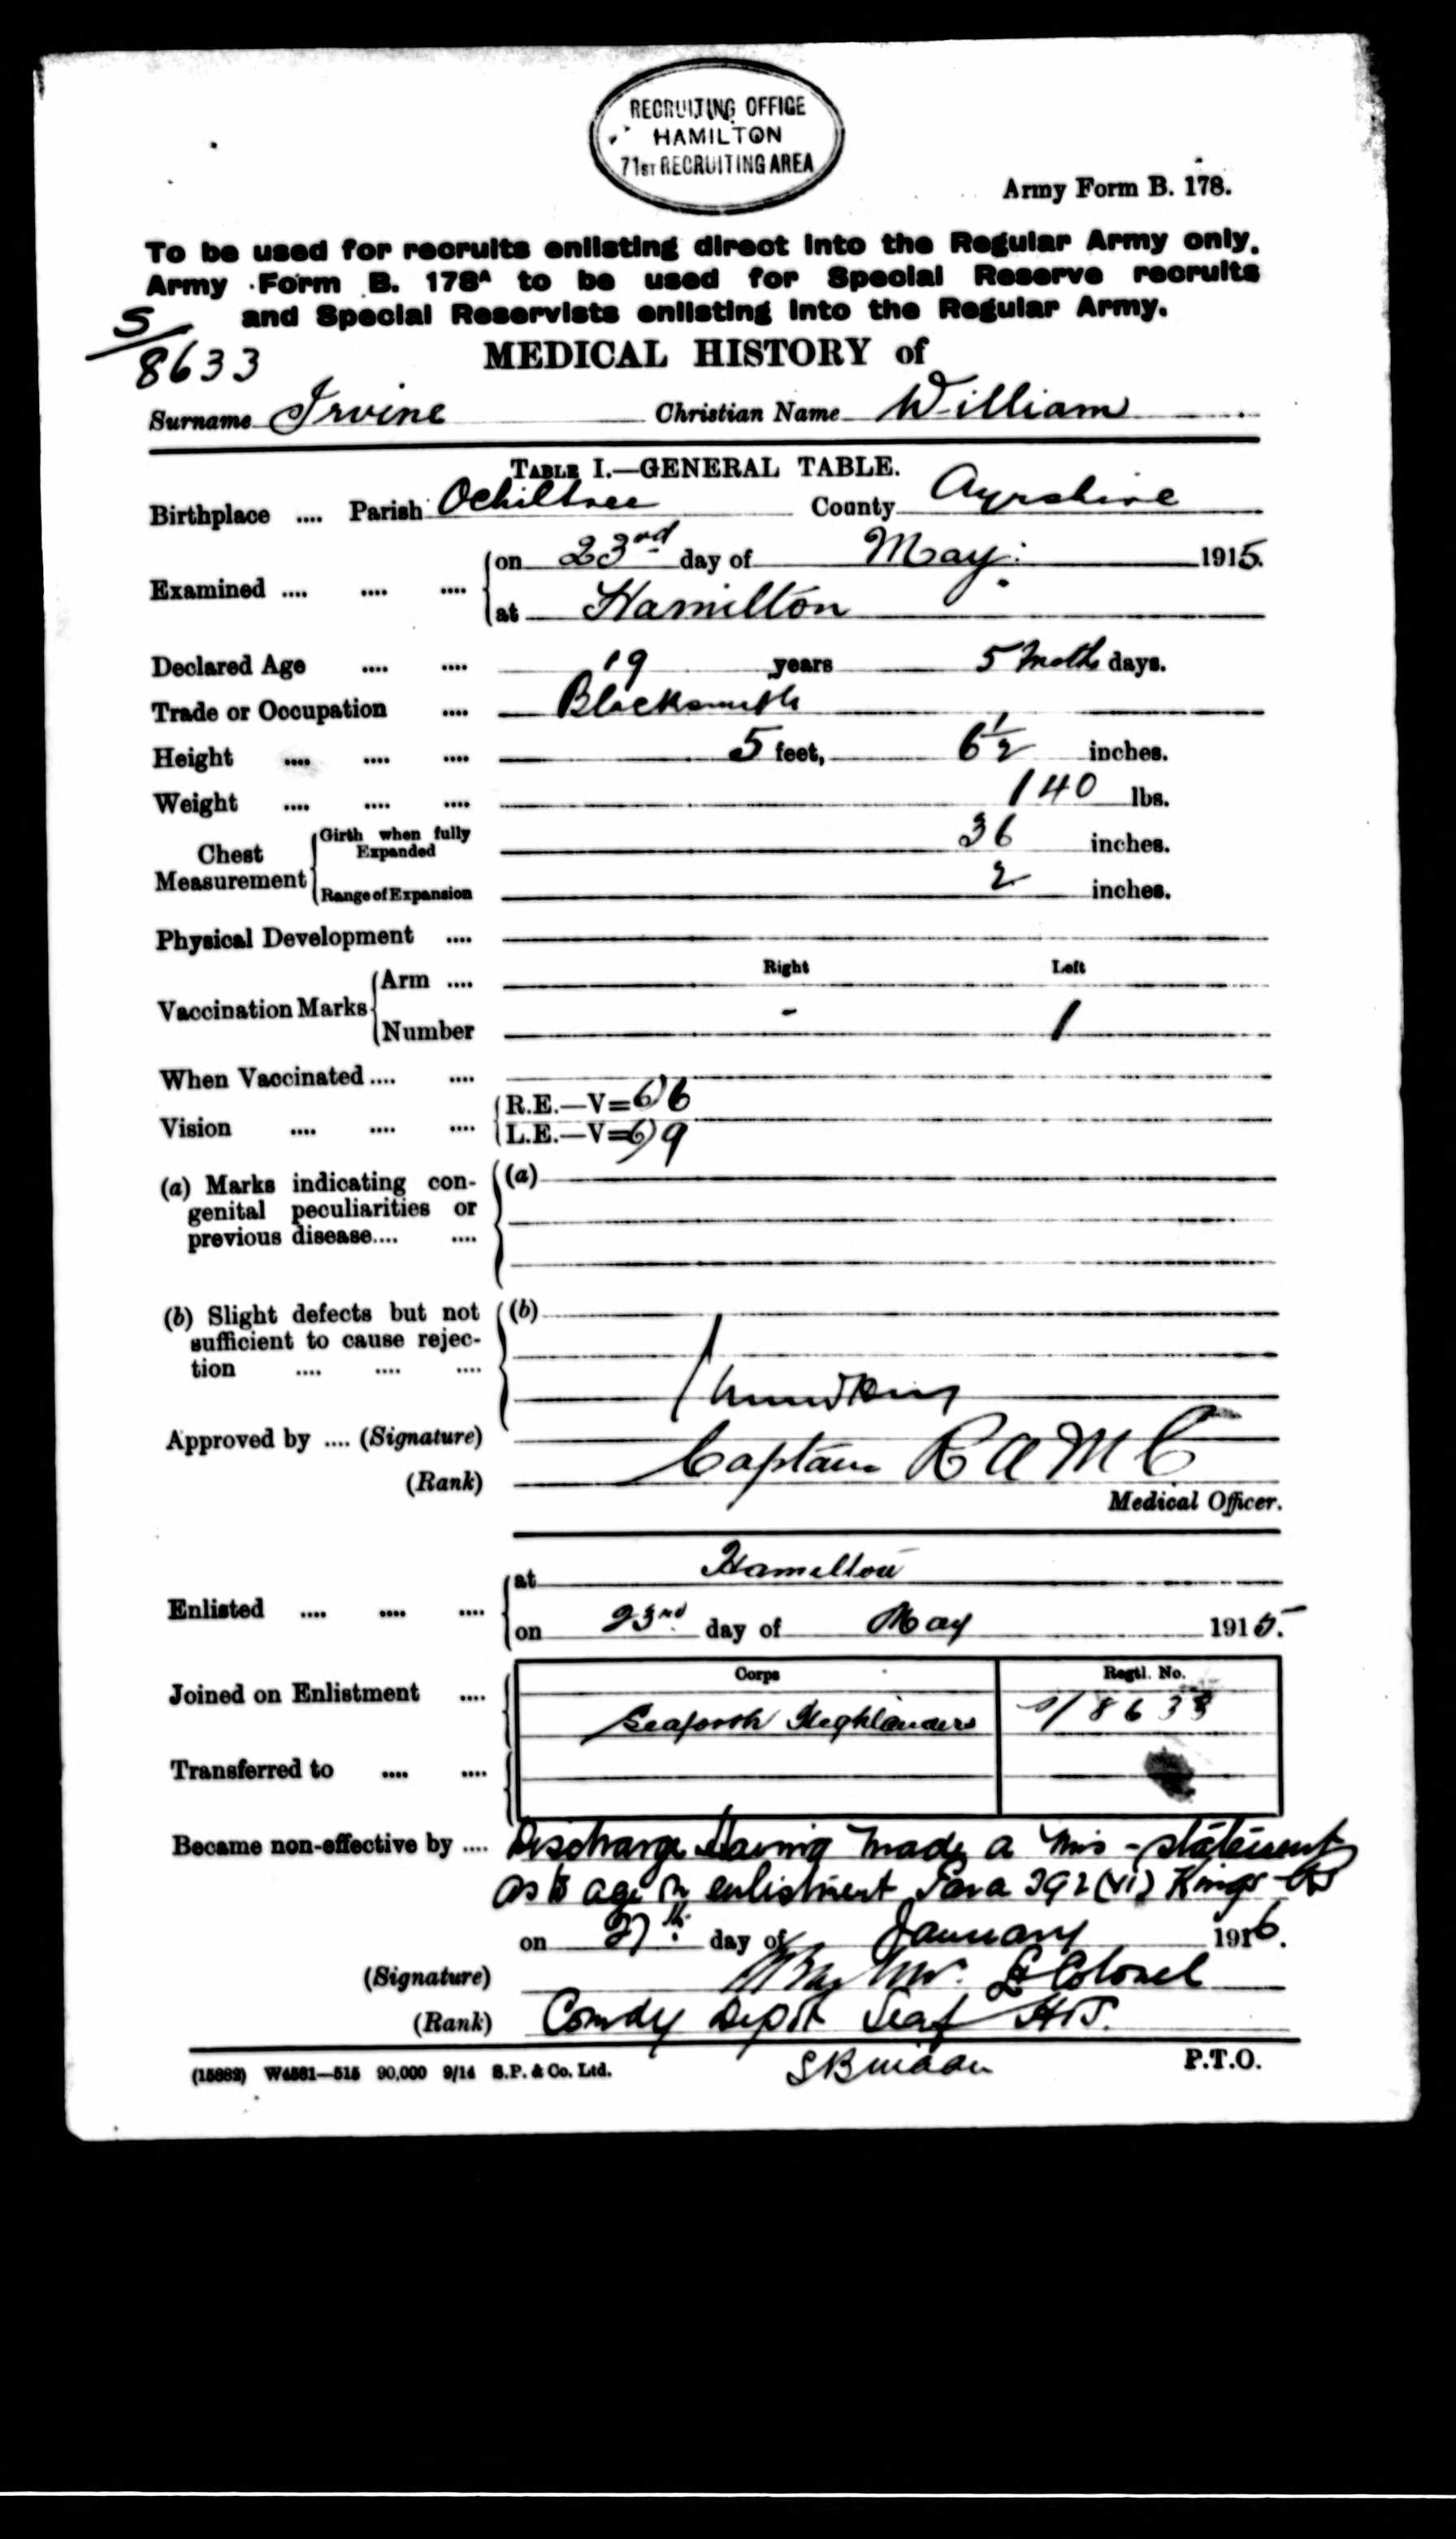 RECRUITING OFFICE
HAMILTON
71ST RECRUITING AREA
Army Form B. 178.
To be used for recruits enlisting direct into the Regular Army only.
Army Form B. 178A to be used for Special Reserve recruits
and Special Reservists enlisting into the Regular Army.
S/
8633
MEDICAL HISTORY of
Surname Irvine Christian Name William
TABLE I.—GENERAL TABLE.
Birthplace .... Parish Ochiltree County Ayrshire
Examined .... .... .... on 23rd day of May 1915.
at Hamilton
Declared Age .... .... 19 years 5 Mnths days.
Trade or Occupation .... Blacksmith
Height .... .... .... 5 feet, 6 1/2 inches.
Weight .... .... .... 140 lbs.
Chest Measurement Girth when fully Expanded 36 inches.
Range of Expansion 2 inches.
Physical Development ....
Right Left
Vaccination Marks Arm ....
Number - 1
When Vaccinated .... ....
Vision .... .... .... R.E.—V=6/6
L.E.—V=6/9
(a) Marks indicating con- (a)
genital peculiarities or
previous disease.... ....
(b) Slight defects but not (b)
sufficient to cause rejec-
tion .... .... ....
Approved by .... (Signature)
(Rank) Captain R A M C
Medical Officer.
Enlisted .... .... .... at Hamilton
on 23rd day of May 1915.
Corps Regtl. No.
Joined on Enlistment .... Seaforth Highlanders S/8633
Transferred to .... ....
Became non-effective by .... Discharge Having made a mis-statement
as to age on enlistment Para 392 (vi) Kings
on 27th day of January 1916.
(Signature) Lt Colonel
(Rank) Comdg Depot Seaf Hrs.
(15882) W4581—515 90,000 9/14 S.P. & Co. Ltd.
P.T.O.